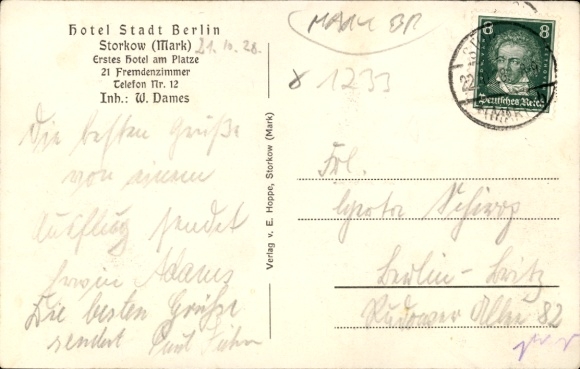 Hotel Stadt Berlin
Storkow (Mark)
21.10.28.
Erstes Hotel am Platze
21 Fremdenzimmer
Telefon Nr. 12
Inh.: W. Dames
MARK BR
1233
8 8
Deutsches Reich
Die besten Grüße
von einem
Ausflug sendet
Erwin Adams
Die besten Grüße
sendet Paul
Verlag v. E. Hoppe, Storkow (Mark)
Frl.
Berlin-Britz
Rudower Allee 82